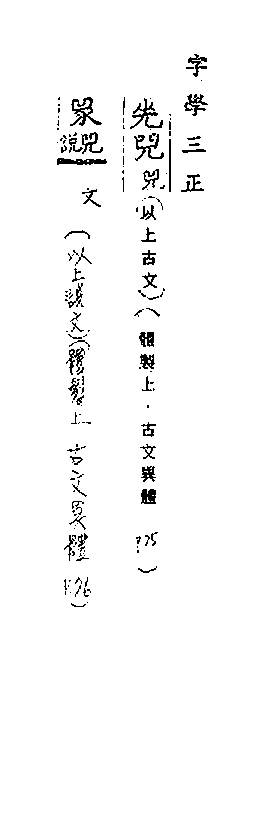 字學三正
兕(以上古文)(體製上．古文異體 P.75)
說文(以上說文)(體製上 古文異體 P.76)